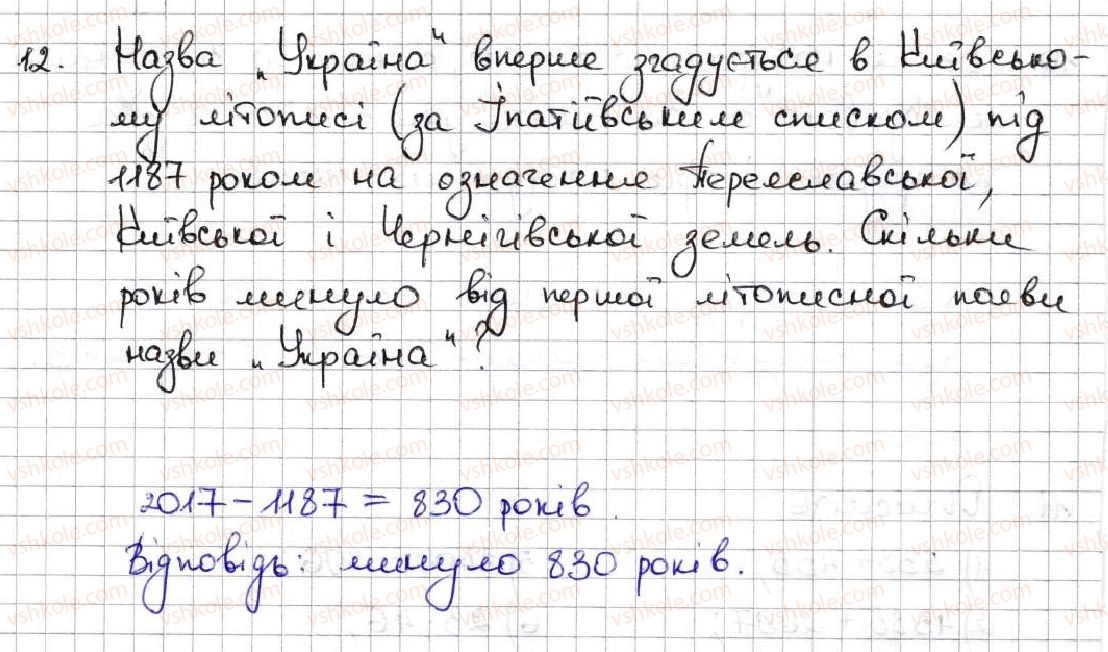 12. Назва „Україна“ вперше згадується в Київсько-
му літописі (за Іпатіївським списком) під
1187 роком на означення Переяславської,
Київської і Чернігівської земель. Скільки
років минуло від першої літописної появи
назви „Україна“?
2017 - 1187 = 830 років.
Відповідь: минуло 830 років.